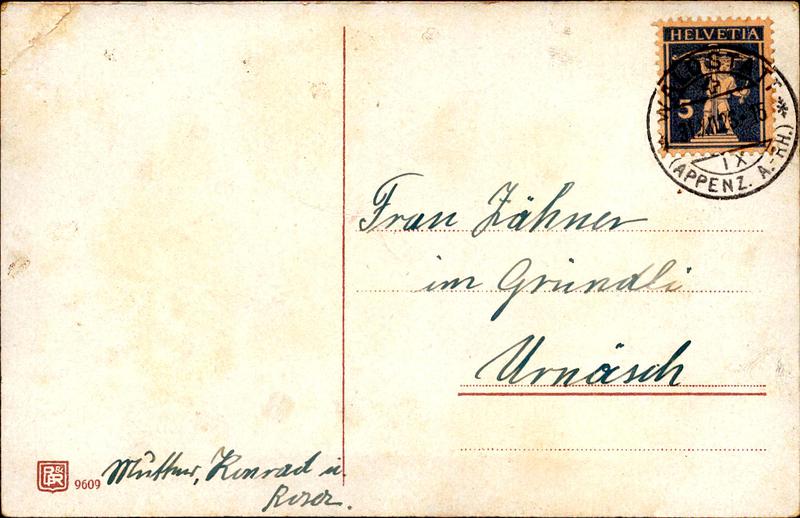 HELVETIA
5
WALDSTATT
IX
(APPENZ. A.-RH.)
Frau Zähner
im Gründli
Urnäsch
9609
Mutter, Konrad u.
Rosa.